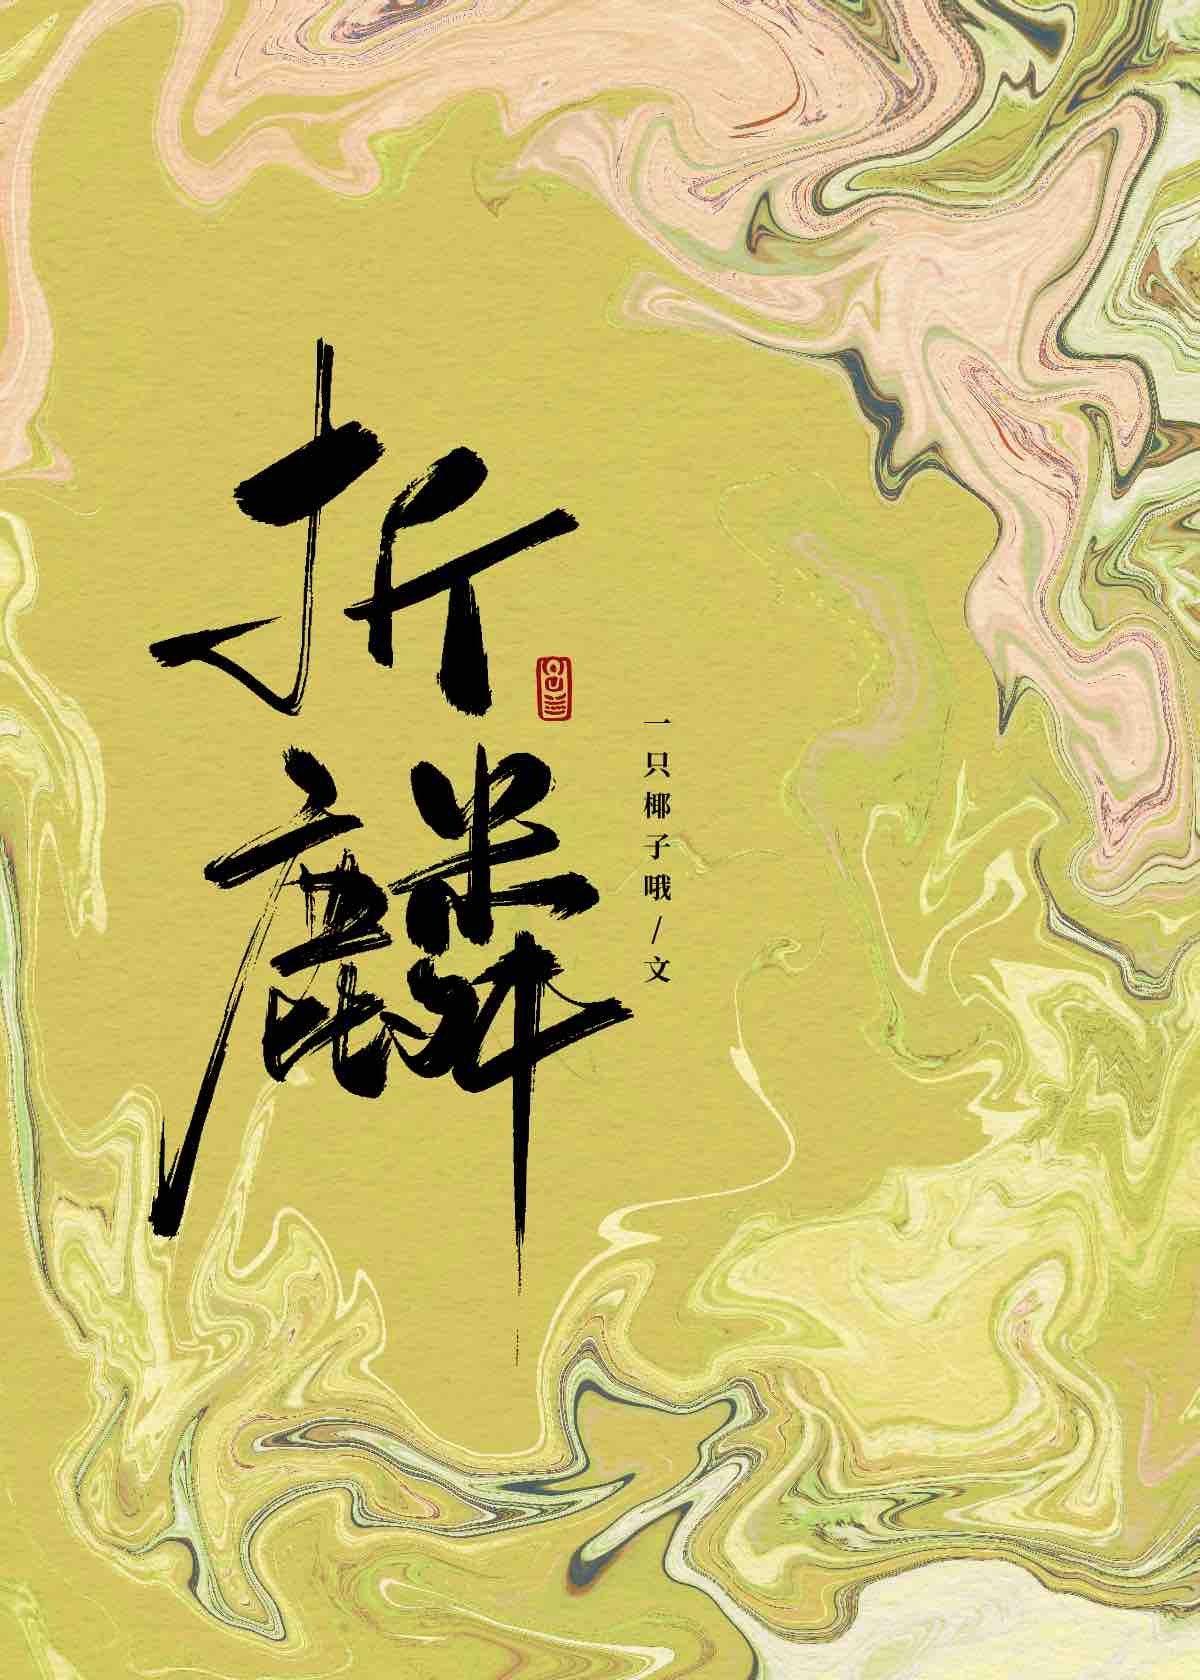 折麟
一只椰子哦/文